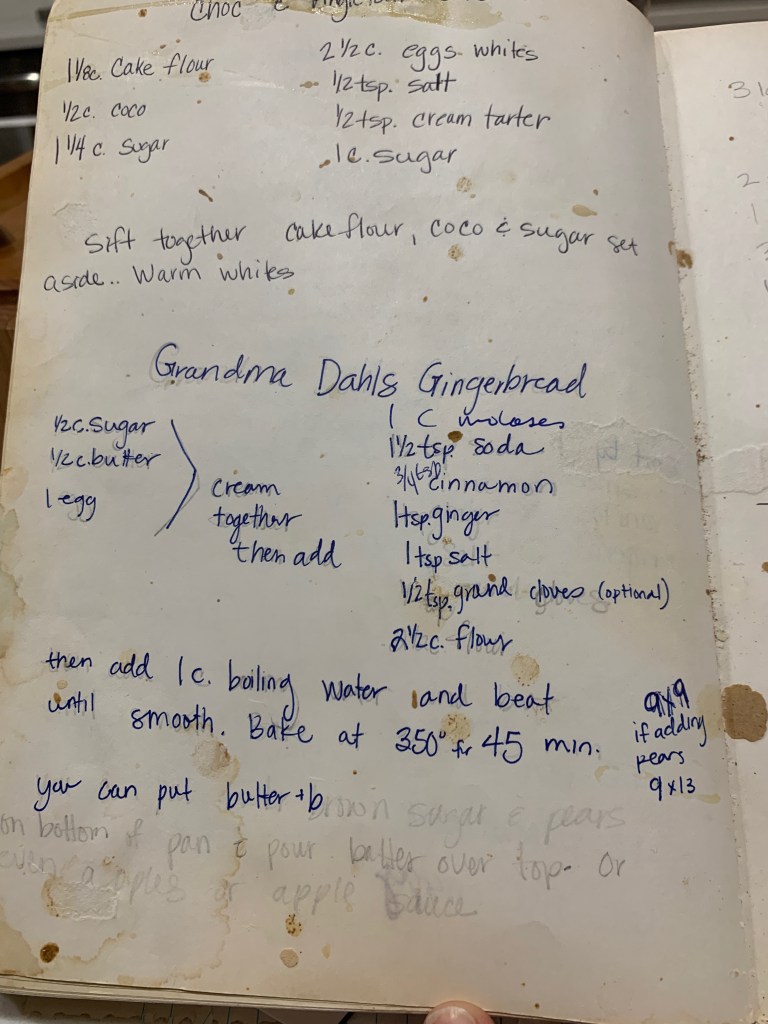 Choc &
1 1/8c. Cake flour
1/2 c. coco
1 1/4 c. sugar
2 1/2 c. eggs whites
1/2 tsp. salt
1/2 tsp. cream tarter
1 c. sugar
Sift together cake flour, coco & sugar set
aside.. Warm whites
Grandma Dahls Gingerbread
1/2 c. sugar
1/2 c. butter
1 egg
cream
together
then add
1 c molases
1 1/2 tsp. soda
3/4 tsp. cinnamon
1 tsp. ginger
1 tsp salt
1/2 tsp. grand cloves (optional)
2 1/2 c. flour
then add 1 c. boiling water and beat
until smooth. Bake at 350° for 45 min.
9x9
if adding
pears
9x13
you can put butter + b brown sugar & pears
on bottom of pan & pour batter over top. Or
even apples or apple sauce
3
2
1